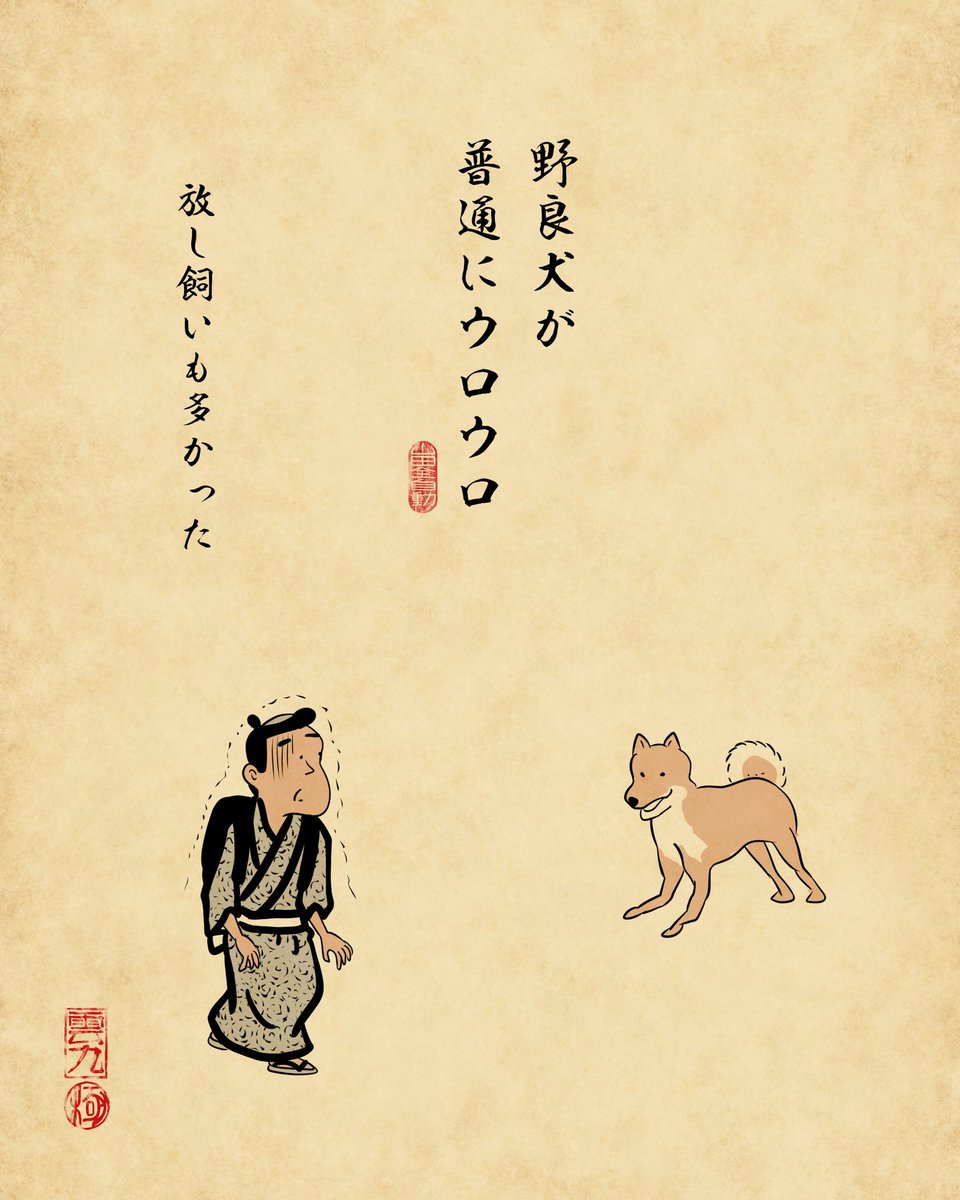 野良犬が
普通にウロウロ
放し飼いも多かった